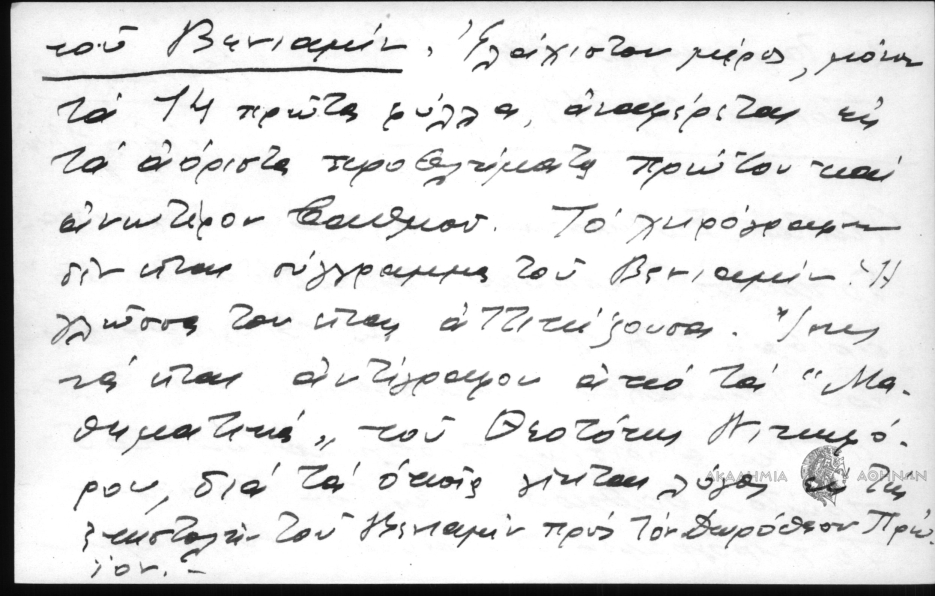 τοῦ Βενιαμίν. Ἐλάχιστον μέρος, μόνον
τά 14 πρῶτα φύλλα, ἀναφέρεται εἰς
τά ἀόριστα προβλήματα πρώτου καί
ἀνωτέρου βαθμοῦ. Τό χειρόγραφον
δέν εἶναι σύγγραμμα τοῦ Βενιαμίν. Ἡ
γλῶσσα του εἶναι ἀττικίζουσα. Ἴσως
νά εἶναι ἀντίγραφον ἀπό τά "Μα-
θηματικά" τοῦ Θεοτόκη Νικηφό-
ρου, διά τά ὁποῖα γίνεται λόγος εἰς τήν
ἐπιστολήν τοῦ Βενιαμίν πρός τόν Δωρόθεον Πρώ-
ϊον.-
ΑΚΑΔΗΜΙΑ ΑΘΗΝΩΝ